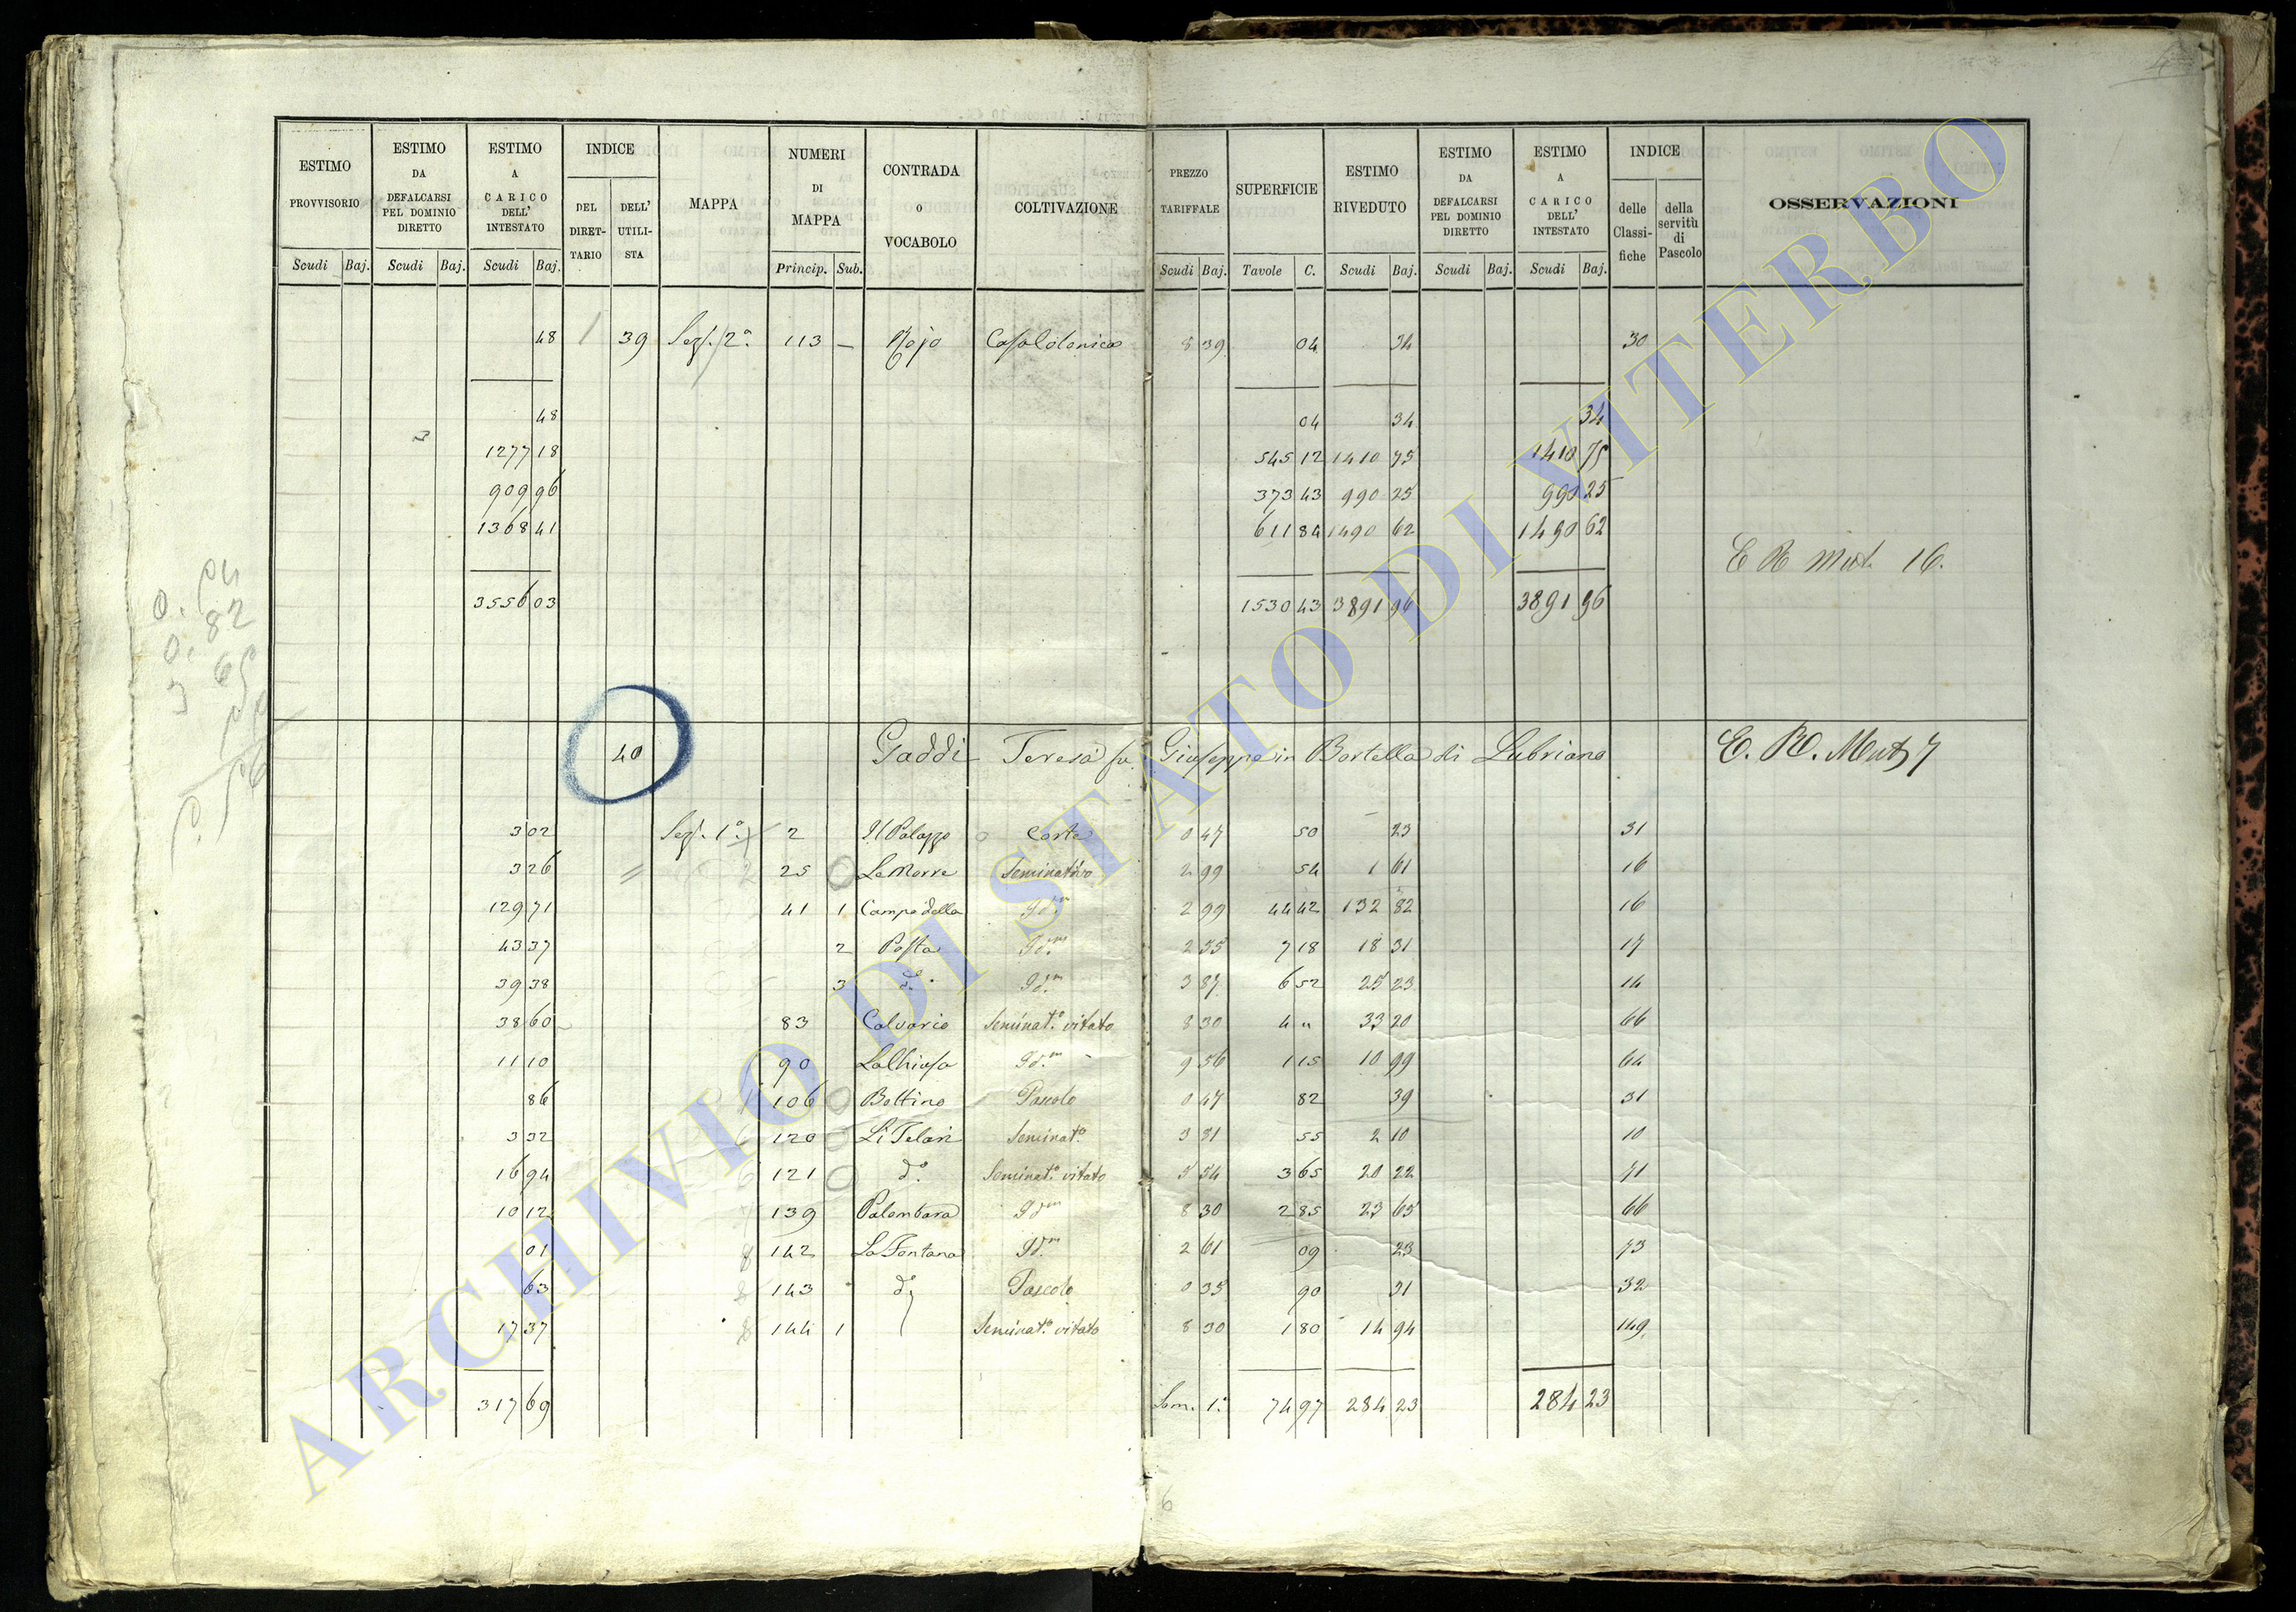 ESTIMO PROVVISORIO ESTIMO DA DEFALCARSI PEL DOMINIO DIRETTO ESTIMO A CARICO DELL' INTESTATO INDICE DEL DIRETTARIO DELL' UTILISTA MAPPA NUMERI DI MAPPA CONTRADA O VOCABOLO COLTIVAZIONE PREZZO TARIFFALE SUPERFICIE ESTIMO RIVEDUTO ESTIMO DA DEFALCARSI PEL DOMINIO DIRETTO ESTIMO A CARICO DELL' INTESTATO INDICE delle Classifiche della servitù di Pascolo OSSERVAZIONI
Scudi Baj. Scudi Baj. Scudi Baj. Princip. Sub. Scudi Baj. Tavole C. Scudi Baj. Scudi Baj. Scudi Baj.
48 39 Sez. 2ª 113 — Casa colonica 8 39 04 34 30
48 04 34 34
1277 18 545 12 1410 75 1410 75
909 96 373 43 990 25 990 25
1368 41 611 84 1490 62 1490 62
E R Mut. 16.
3556 03 1530 43 3891 96 3891 96
40 Gaddi Teresa fu Giuseppe in Bartella di Lubriano E. R. Mut 7
3 02 Sez. 1ª 2 Il Palazzo Corte 0 47 50 23 31
3 26 25 Le Morre Seminativo 2 99 54 1 61 16
129 71 41 1 Campo della Id.m 2 99 44 42 132 82 16
43 37 2 Posta Id.m 2 55 7 18 18 31 17
39 38 3 d.º Id.m 3 87 6 52 25 23 14
38 60 83 Calvario Seminat.º vitato 8 30 4 " 33 20 66
11 10 90 La Chiusa Id.m 9 56 1 15 10 99 64
86 106 Bottino Pascolo 0 47 82 39 31
3 32 120 Li Telari Seminat.º 3 81 55 2 10 10
16 94 121 d.º Seminat.º vitato 5 54 3 65 20 22 71
10 12 139 Palombara Id.m 8 30 2 85 23 65 66
01 142 La Fontana Id.m 2 61 09 23 73
63 143 d.º Pascolo 0 35 90 31 32
17 37 144 1 Seminat.º vitato 8 30 1 80 14 94 149
317 69 Som. 1ª 74 97 284 23 284 23
6
ARCHIVIO DI STATO DI VITERBO